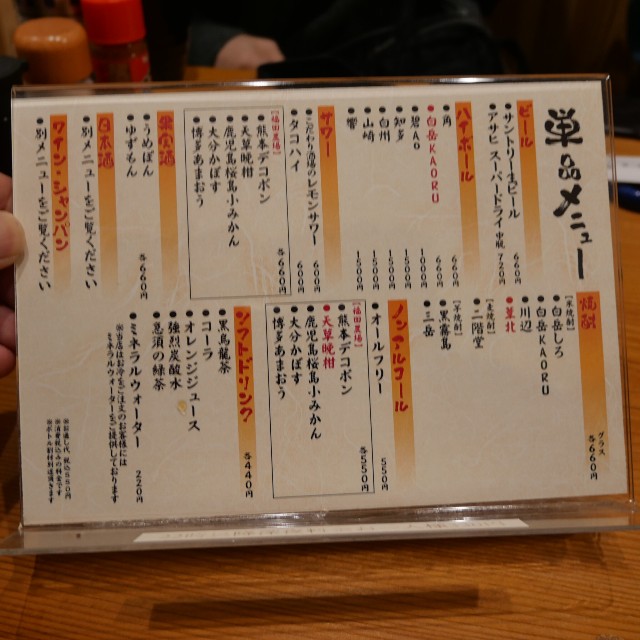 単品メニュー
ビール
●サントリー生ビール 660円
●アサヒ スーパードライ 中瓶 720円
ハイボール
●角 660円
●白岳KAORU 660円
●碧Ao 1000円
●知多 1000円
●白州 1000円
●山崎 1000円
●響 1500円
サワー
●こだわり酒場のレモンサワー 600円
●タコハイ 600円
【福田農場】 各660円
●熊本デコポン
●天草晩柑
●鹿児島桜島小みかん
●大分かぼす
●博多あまおう
果実酒
●うめぽん
●ゆずもん
各660円
日本酒
●別メニューをご覧ください
ワイン・シャンパン
●別メニューをご覧ください
焼酎 グラス 各660円
【米焼酎】
●白岳しろ
●白岳KAORU
●川辺
【麦焼酎】
●二階堂
【芋焼酎】
●黒霧島
●三岳
ノンアルコール
●オールフリー 550円
【福田農場】 各550円
●熊本デコポン
●天草晩柑
●鹿児島桜島小みかん
●大分かぼす
●博多あまおう
ソフトドリンク 各440円
●黒烏龍茶
●コーラ
●オレンジジュース
●強烈炭酸水
●急須の緑茶
●ミネラルウォーター 220円